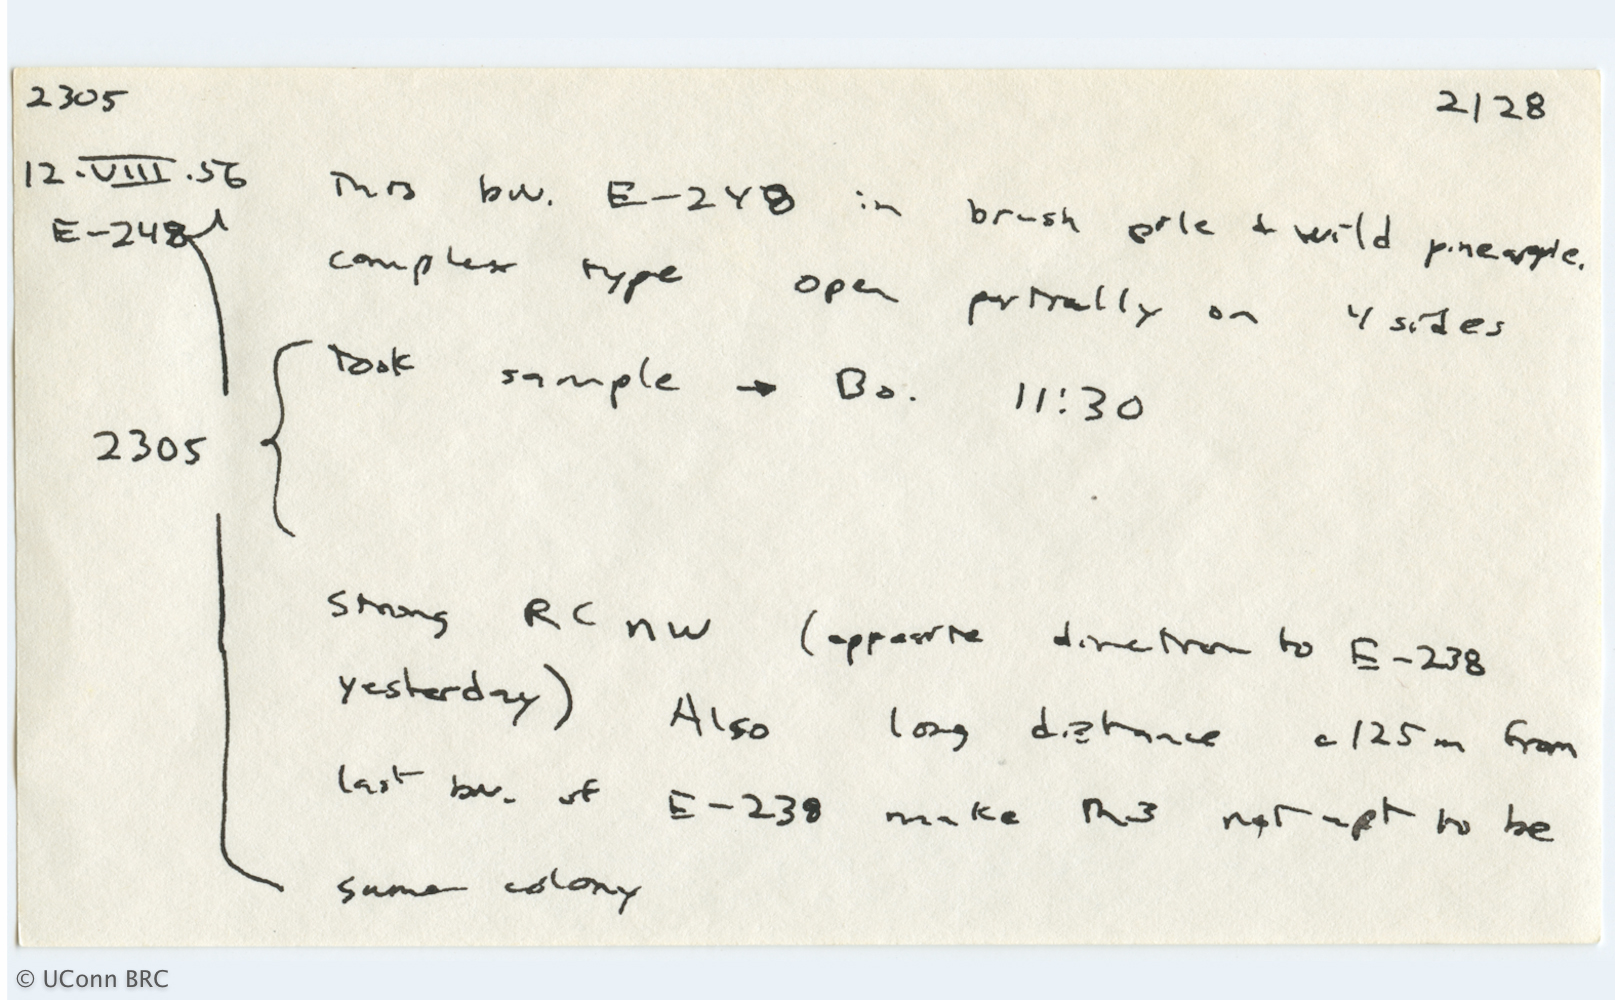 2305 2128
12.VIII.56 This biv. E-248 in brush pile & wild pineapple.
E-248
complex type open partially on 4 sides
Took sample → Bo. 11:30
2305
strong RC NW (opposite direction to E-238
yesterday) Also long distance c 125 m from
last biv. of E-238 make this not apt to be
same colony
© UConn BRC